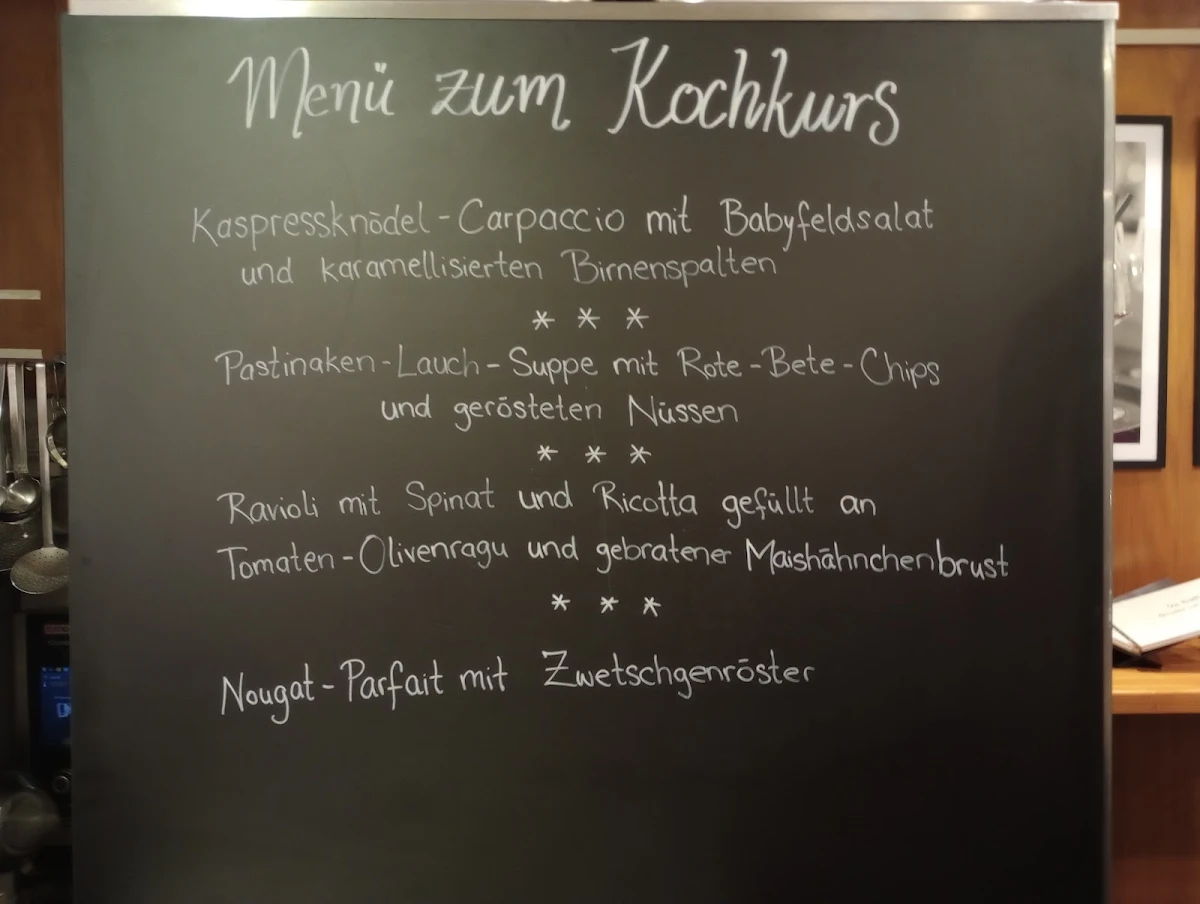 Menü zum Kochkurs
Kaspressknödel-Carpaccio mit Babyfeldsalat
und karamellisierten Birnenspalten
* * *
Pastinaken-Lauch-Suppe mit Rote-Bete-Chips
und gerösteten Nüssen
* * *
Ravioli mit Spinat und Ricotta gefüllt an
Tomaten-Olivenragu und gebratener Maishähnchenbrust
* * *
Nougat-Parfait mit Zwetschgenröster